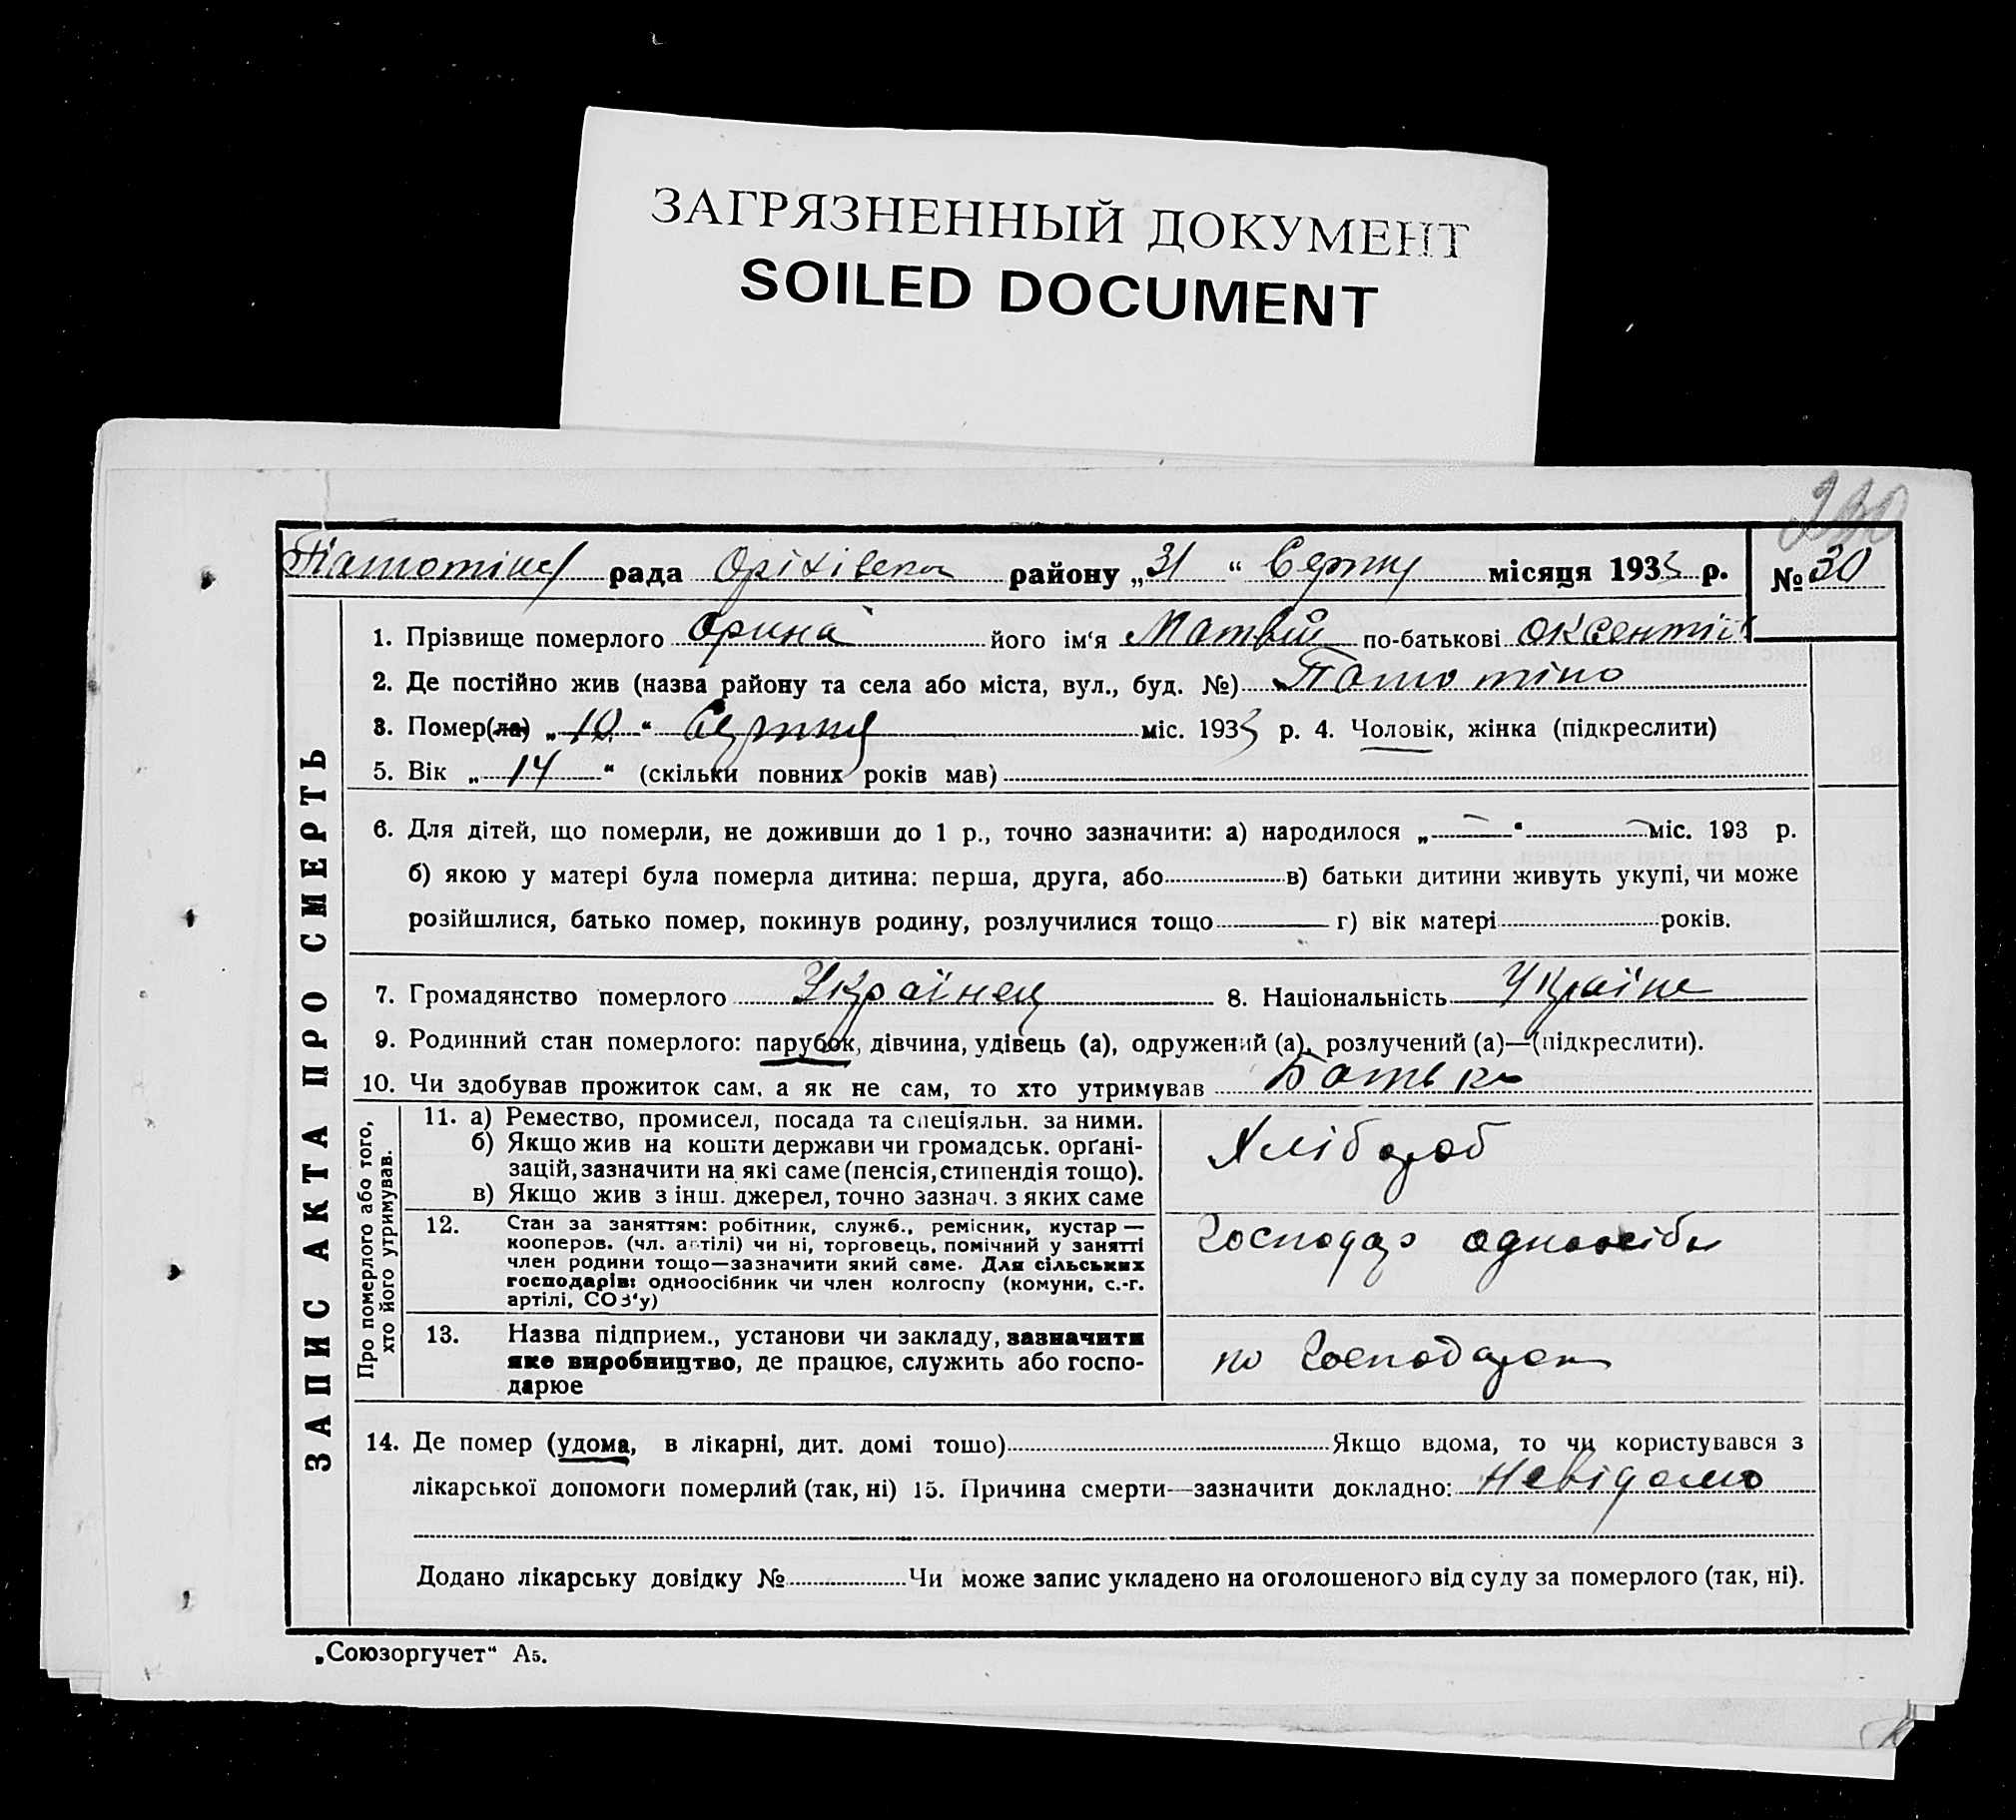 ЗАГРЯЗНЕННЫЙ ДОКУМЕНТ
SOILED DOCUMENT
рада Оріхівськ району „31“ Серпня місяця 1933 р. № 30
ЗАПИС АКТА ПРО СМЕРТЬ
1. Прізвище померлого Орина його ім‘я Матвій по-батькові Оксентій
2. Де постійно жив (назва району та села або міста, вул., буд. №)
3. Помер(ла) „10“ Серпня міс. 1933 р. 4. Чоловік, жінка (підкреслити)
5. Вік „14“ (скільки повних років мав)
6. Для дітей, що померли, не доживши до 1 р., точно зазначити: а) народилося „—“ — міс. 193 р.
б) якою у матері була померла дитина: перша, друга, або в) батьки дитини живуть укупі, чи може
розійшлися, батько помер, покинув родину, розлучилися тощо — г) вік матері років.
7. Громадянство померлого Українец 8. Національність Україне
9. Родинний стан померлого: парубок, дівчина, удівець (а), одружений (а), розлучений (а)—(підкреслити).
10. Чи здобував прожиток сам, а як не сам, то хто утримував Батько
Про померлого або того,
хто його утримував.
11. а) Ремество, промисел, посада та спеціяльн. за ними.
б) Якщо жив на кошти держави чи громадськ. орґані-
зацій, зазначити на які саме (пенсія, стипендія тощо).
в) Якщо жив з інш. джерел, точно зазнач. з яких саме
Хлібороб
12. Стан за заняттям: робітник, служб., ремісник, кустар —
кооперов. (чл. артілі) чи ні, торговець, помічний у занятті
член родини тощо—зазначити який саме. Для сільських
господарів: одноосібник чи член колгоспу (комуни, с.-г.
артілі, СОЗ‘у)
Господар одноосібн
13. Назва підприєм., установи чи закладу, зазначити
яке виробництво, де працює, служить або госпо-
дарює
по
14. Де помер (удома, в лікарні, дит. домі тошо) Якщо вдома, то чи користувався з
лікарської допомоги померлий (так, ні) 15. Причина смерти—зазначити докладно: Невідомо
Додано лікарську довідку № Чи може запис укладено на оголошеного від суду за померлого (так, ні).
„Союзоргучет“ А5.